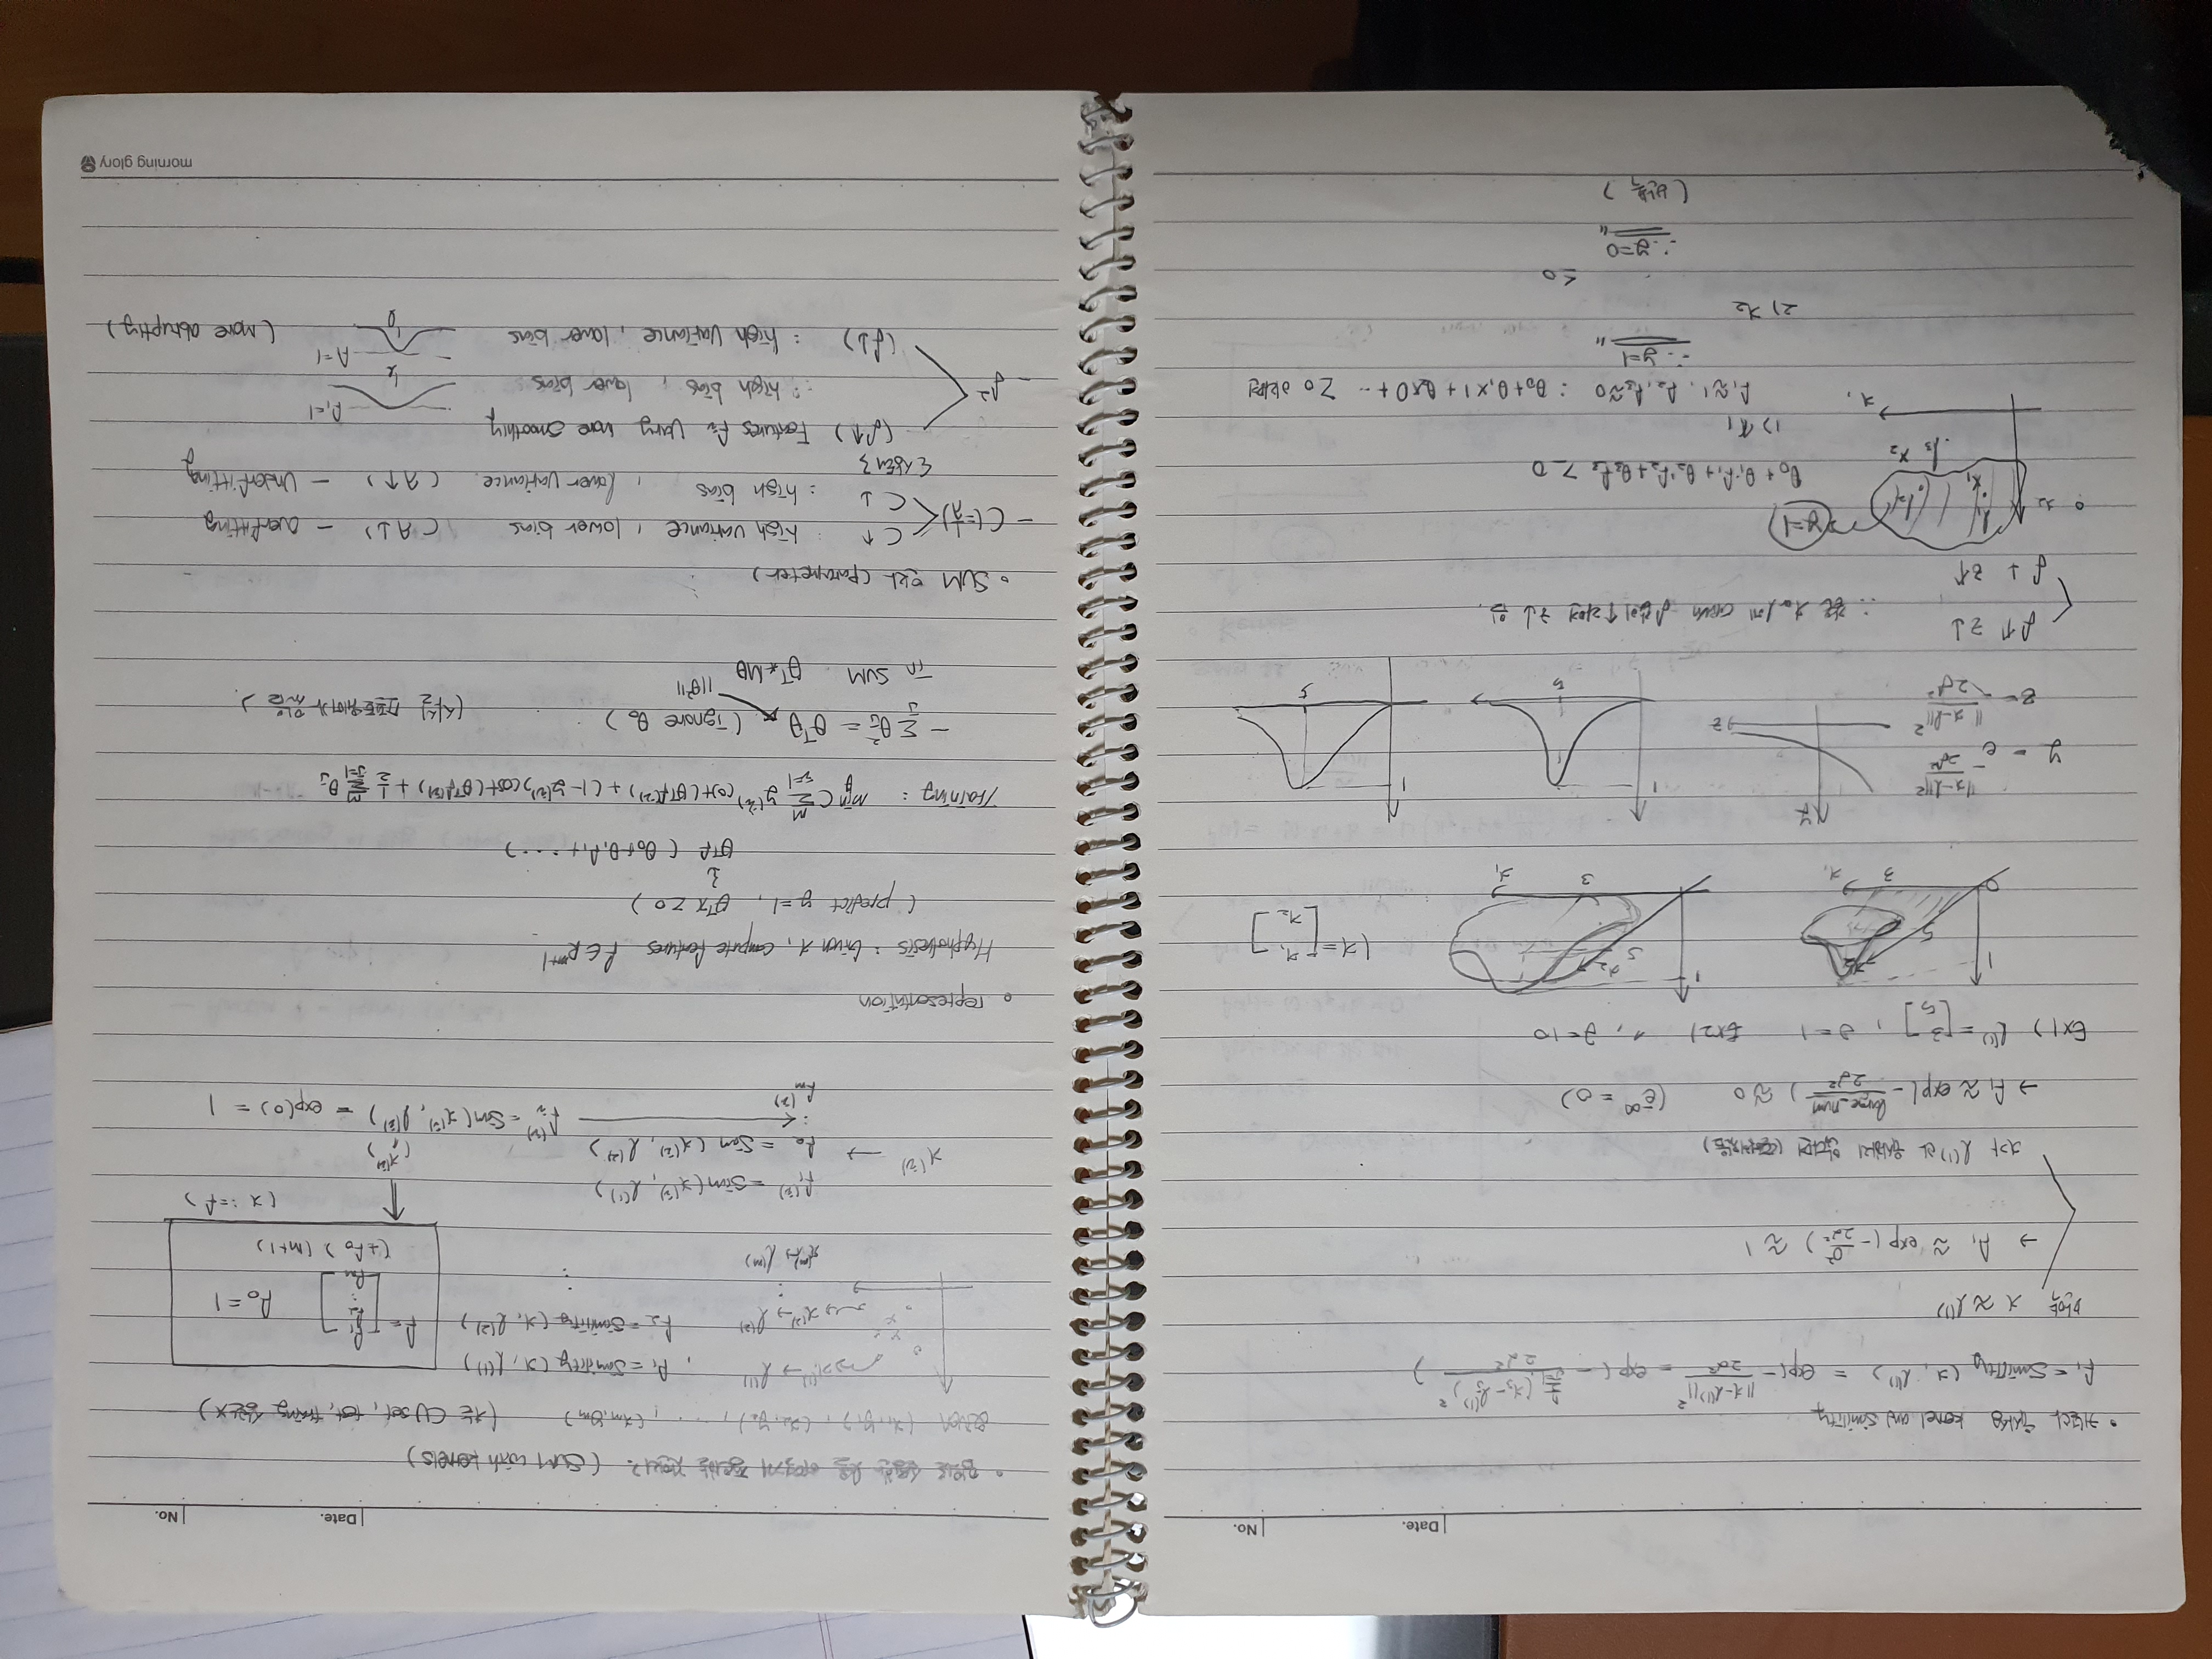 Date. No.
• 커널과 유사성 kernel and simility
f₁ = Simility (x, l⁽¹⁾) = exp(- ||x-l⁽¹⁾||² / 2σ²) = exp(- Σⱼ₌₁ⁿ (xⱼ - lⱼ⁽¹⁾)² / 2σ²)
만약 x ≈ l⁽¹⁾
→ f₁ ≈ exp(- 0² / 2σ²) ≈ 1
x가 l⁽¹⁾과 유사하지 않다면 (떨어져있음)
→ f₁ ≈ exp(- large_num / 2σ²) ≈ 0 (e^-∞ = 0)
Ex1) l⁽¹⁾ = [3 5], σ=1 Ex2) 〃, σ=10
1 5 x₂ 0 3 x₁
1 x₂ 5 3 x₁
(x = [x₁ x₂]
y = e^(- ||x-l||² / 2σ²)
z = ||x-l||² / 2σ²
y z
1 5
1 5
σ↑ z↓
∴ 같은 x, l에 대해 σ값이 ↑라면 z↓ 임.
σ↓ z↑
• x₂ l₁ x₁ l₂ y=1
l₃ x₂
x₁
θ₀ + θ₁f₁ + θ₂f₂ + θ₃f₃ ≥ 0
1) x₁
f₁≈1, f₂, f₃≈0 : θ₀ + θ₁×1 + θ₂×0 + ··· ≥0 이라면
∴ y=1 〃
2) x₂
≤ 0
∴ y=0 〃
(반복)
Date. No.
• 임의로 설정한 l을 어떻게 정의할 것인가? (SUM with kernels)
(x₁,y₁), (x₂,y₂), ····, (xm,ym) (x는 CV set, test, traing 상관 X)
x⁽¹⁾→ l⁽¹⁾ , f₁ = Simility (x, l⁽¹⁾)
x⁽²⁾→ l⁽²⁾ f₂ = Simility (x, l⁽²⁾)
⋮ ⋮
x⁽ᵐ⁾→ l⁽ᵐ⁾
f = [f₁ f₂ ⋮ fm] f₀ = 1
(+f₀) (m+1)
(x := f)
(x⁽ⁱ⁾)
x⁽ⁱ⁾ → f₁⁽ⁱ⁾ = Sim(x⁽ⁱ⁾, l⁽¹⁾)
f₂ = Sim (x⁽ⁱ⁾, l⁽²⁾)
⋮ ← fᵢ⁽ⁱ⁾ = Sim(x⁽ⁱ⁾, l⁽ⁱ⁾) = exp(0) = 1
fm⁽ⁱ⁾
• representation
Hyphothesis : Given x, compute features f ∈ R^m+1
( predict y=1, θᵀx ≥0 )
↓
θᵀf (θ₀+θ₁f₁+ ····)
Training : min θ C Σᵢ₌₁ᵐ y⁽ⁱ⁾ cost(θᵀf⁽ⁱ⁾) + (1-y⁽ⁱ⁾) cost(θᵀf⁽ⁱ⁾) + 1/2 Σⱼ₌₁ᵐ θⱼ
- Σⱼ θⱼ² = θᵀθ (ignore θ₀) (사실 소프트웨어가 있음).
||θ²||
in SUM θᵀ*Mθ
• SUM 인자 (parameter)
- C(=1/λ) C↑ : high variance, lower bias (λ↓) - Overfitting
C↓ : high bias, lower variance (λ↑) - Underfitting
{상태}
- σ² (σ↑) Features fᵢ Vary more smoothly
: high bias, lower bias f₁=1 l
(σ↓) : high variance, lower bias f₁=1 l (more abruptly)
morning glory